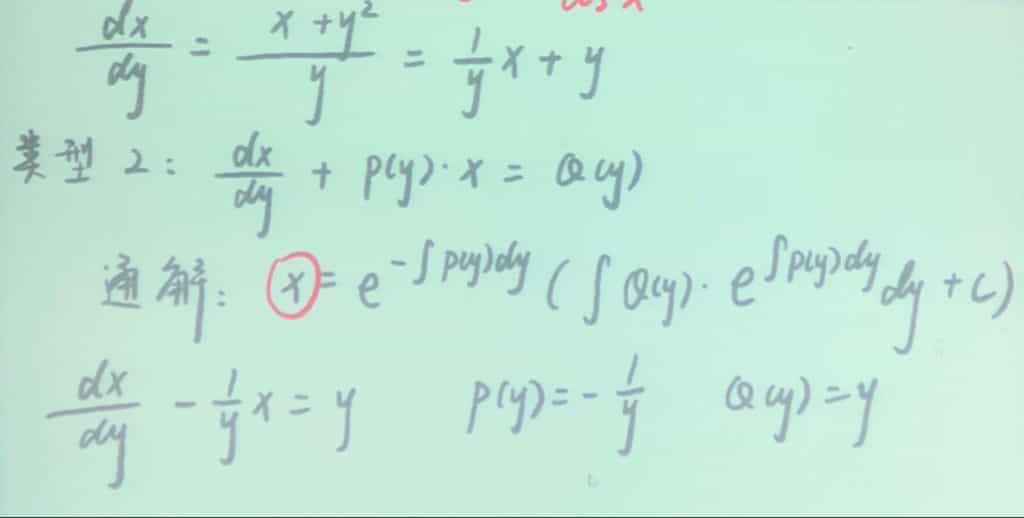 cos x
dx/dy = (x + y²)/y = 1/y x + y
类型 2: dx/dy + P(y)·x = Q(y)
通解: x = e^(-∫P(y)dy) (∫Q(y)·e^(∫P(y)dy) dy + C)
dx/dy - 1/y x = y P(y) = -1/y Q(y) = y